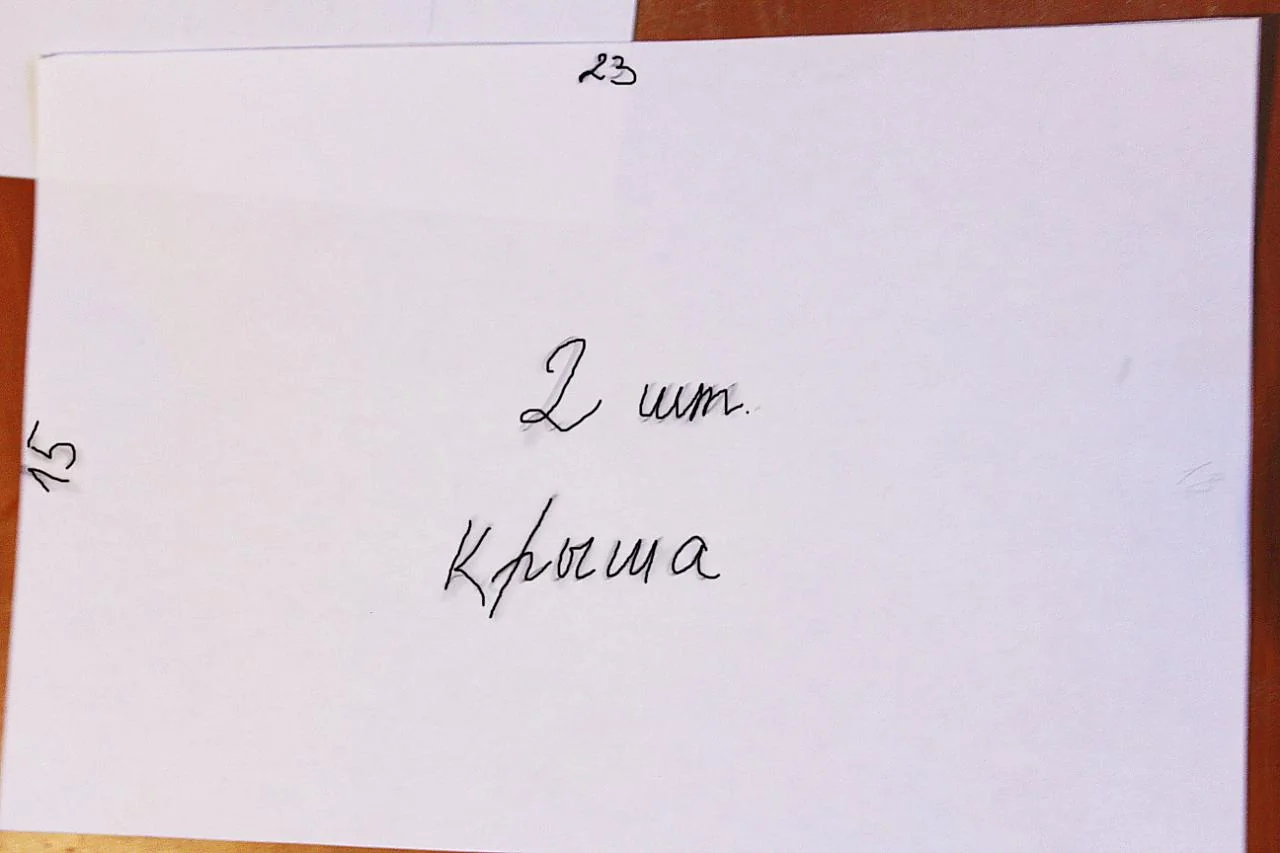 23
2 шт.
15
Крыша